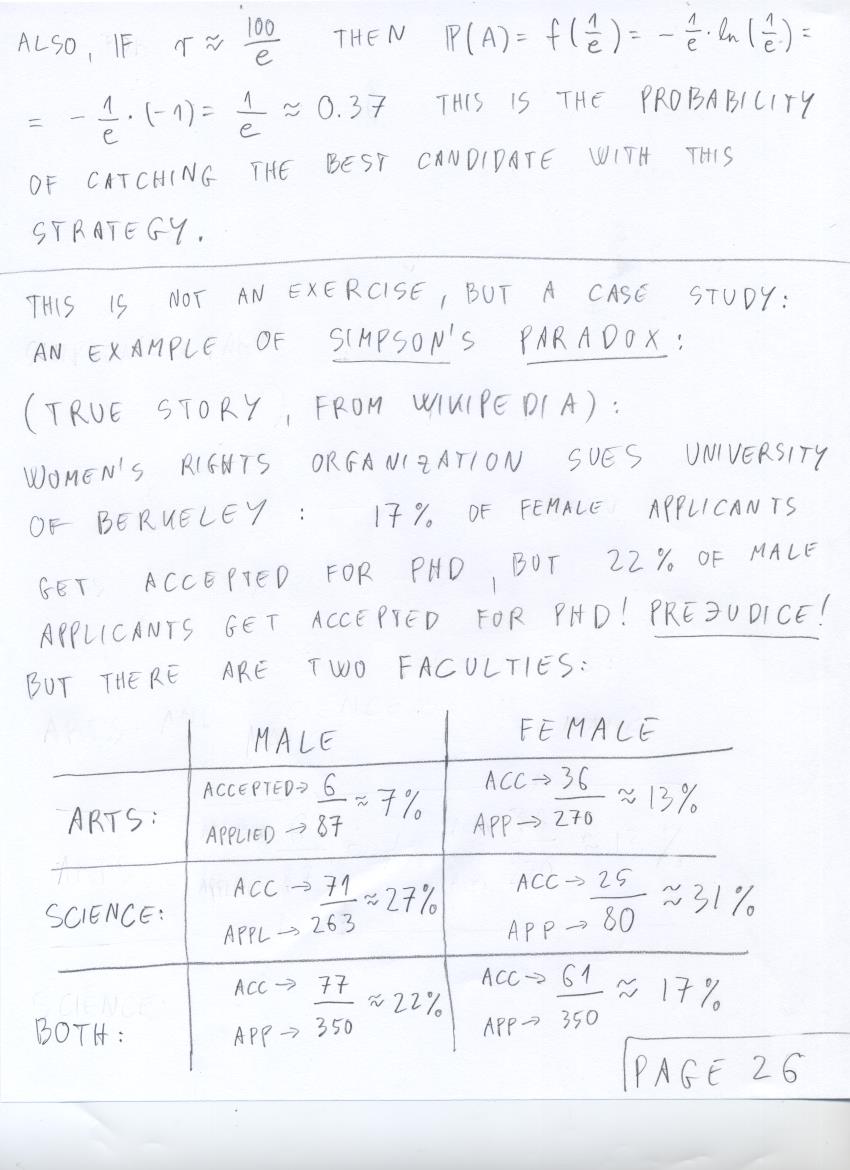 ALSO, IF r ≈ 100/e THEN P(A) = f(1/e) = - 1/e · ln(1/e) =
= - 1/e · (-1) = 1/e ≈ 0.37 THIS IS THE PROBABILITY
OF CATCHING THE BEST CANDIDATE WITH THIS
STRATEGY.
THIS IS NOT AN EXERCISE, BUT A CASE STUDY:
AN EXAMPLE OF SIMPSON'S PARADOX:
(TRUE STORY, FROM WIKIPEDIA):
WOMEN'S RIGHTS ORGANIZATION SUES UNIVERSITY
OF BERKELEY: 17% OF FEMALE APPLICANTS
GET ACCEPTED FOR PHD, BUT 22% OF MALE
APPLICANTS GET ACCEPTED FOR PHD! PREJUDICE!
BUT THERE ARE TWO FACULTIES:
MALE FEMALE
ARTS: ACCEPTED→ 6 / APPLIED → 87 ≈ 7% ACC → 36 / APP → 270 ≈ 13%
SCIENCE: ACC → 71 / APPL → 263 ≈ 27% ACC → 25 / APP → 80 ≈ 31%
BOTH: ACC → 77 / APP → 350 ≈ 22% ACC → 61 / APP → 350 ≈ 17%
PAGE 26